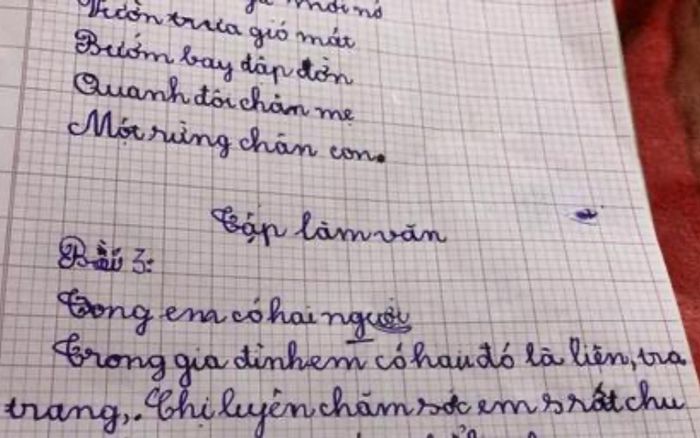 mới nở
Vườn trưa gió mát
Bướm bay dập dờn
Quanh đôi chân mẹ
Một rừng chân con.
Tập làm văn
Bài 3:
Tong em có hai người
Trong gia đình em có hai đó là liên, tra
trang,. Chị luyên chăm sóc em s rất chu